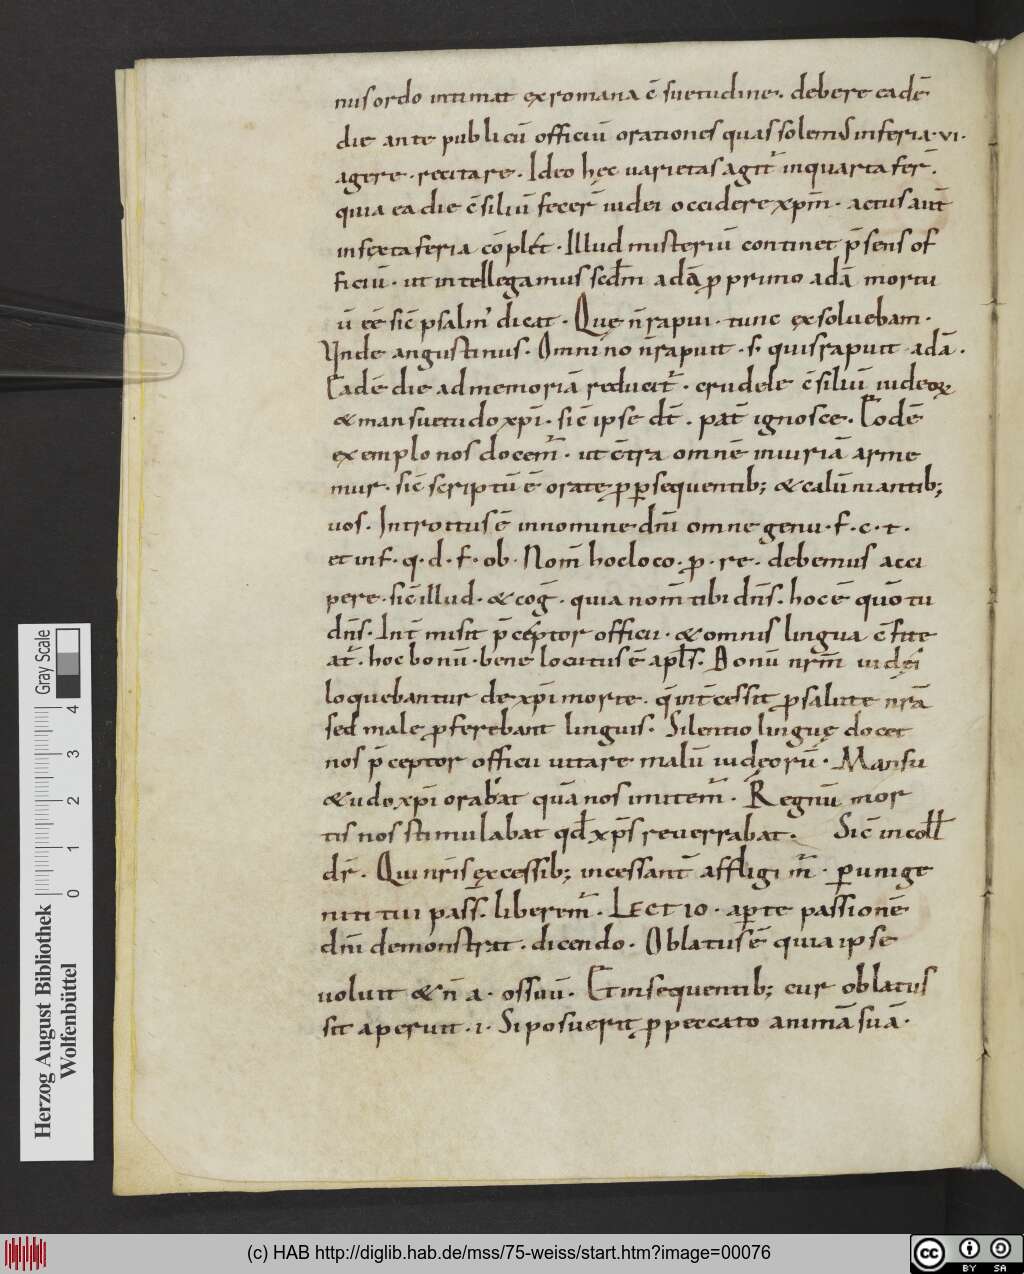 nus ordo intimat ex romana c̄suetudine. debere eadē
die ante publicū officiū orationes quas solemꝰ in feria. vi.
agere. recitare. Ideo hęc varietas agit᷑ in quarta fer̄.
quia ea die c̄siliū fecer̄ iudei occidere xp̄m. actus aut̄
in sexta feria cōplet̄. Illud misteriū continet p̄sens of
ficiū. ut intellegamus scd̄m adā ꝓ primo adā mortu
ū eē sic̄ psalm᾽ dicit. Quę n̄ rapui. tunc exsoluebam.
Unde augustinus. Omnino n̄ rapuit. s. quis rapuit adā.
Eadē die ad memoriā reducit᷑. crudele c̄siliū iudeoꝝ
& mansuetudo xp̄i. sic̄ ipse dt̄. pat̄ ignosce. Eodē
exemplo nos docem᷑. ut c̄tra omnē iniuriā arme
mur. sic̄ scriptū ē orate ꝓ ꝑsequentib; & calūniantib;
uos. Introitus ē in nomine dn̄i omne genu. f. c. t.
et inf. q. d. f. ob. Nom̄ hoc loco. ꝓ. re. debemus acci
pere. sic̄ illud. & coḡ. quia nom̄ tibi dn̄s. hoc ē quō tu
dn̄s. Int̄ misit p̄ceptor officii. & omnis lingua c̄fite
at᷑. hoc bonū. bene locutus ē apl̄s. Bonū nr̄m iudęi
loquebantur de xp̄i morte. q̄ int̄cessit ꝓ salute nr̄a
sed male ꝓferebant linguis. Silentio linguę docet
nos p̄ceptor officii uitare malū iudeorū. Mansu
&udo xp̄i orabat quā nos imitem᷑. Regnū mor
tis nos stimulabat qd̄ xp̄s reuerrabat. Sic̄ in coll̄
dr̄. Qui nr̄is excessib; incessant̄ affligim᷑. ꝑ unige
niti tui pass̄. liberem᷑. LECTIO. aꝑte passionē
dn̄i demonstrat. dicendo. Oblatus ē quia ipse
uoluit & n̄ a. os suū. Et in sequentib; cur oblatus
sit aperuit. i. Si posuerit ꝓ peccato animā suā.
Gray Scale
4 3 2 1 0
Herzog August Bibliothek
Wolfenbüttel
(c) HAB http://diglib.hab.de/mss/75-weiss/start.htm?image=00076
cc BY SA